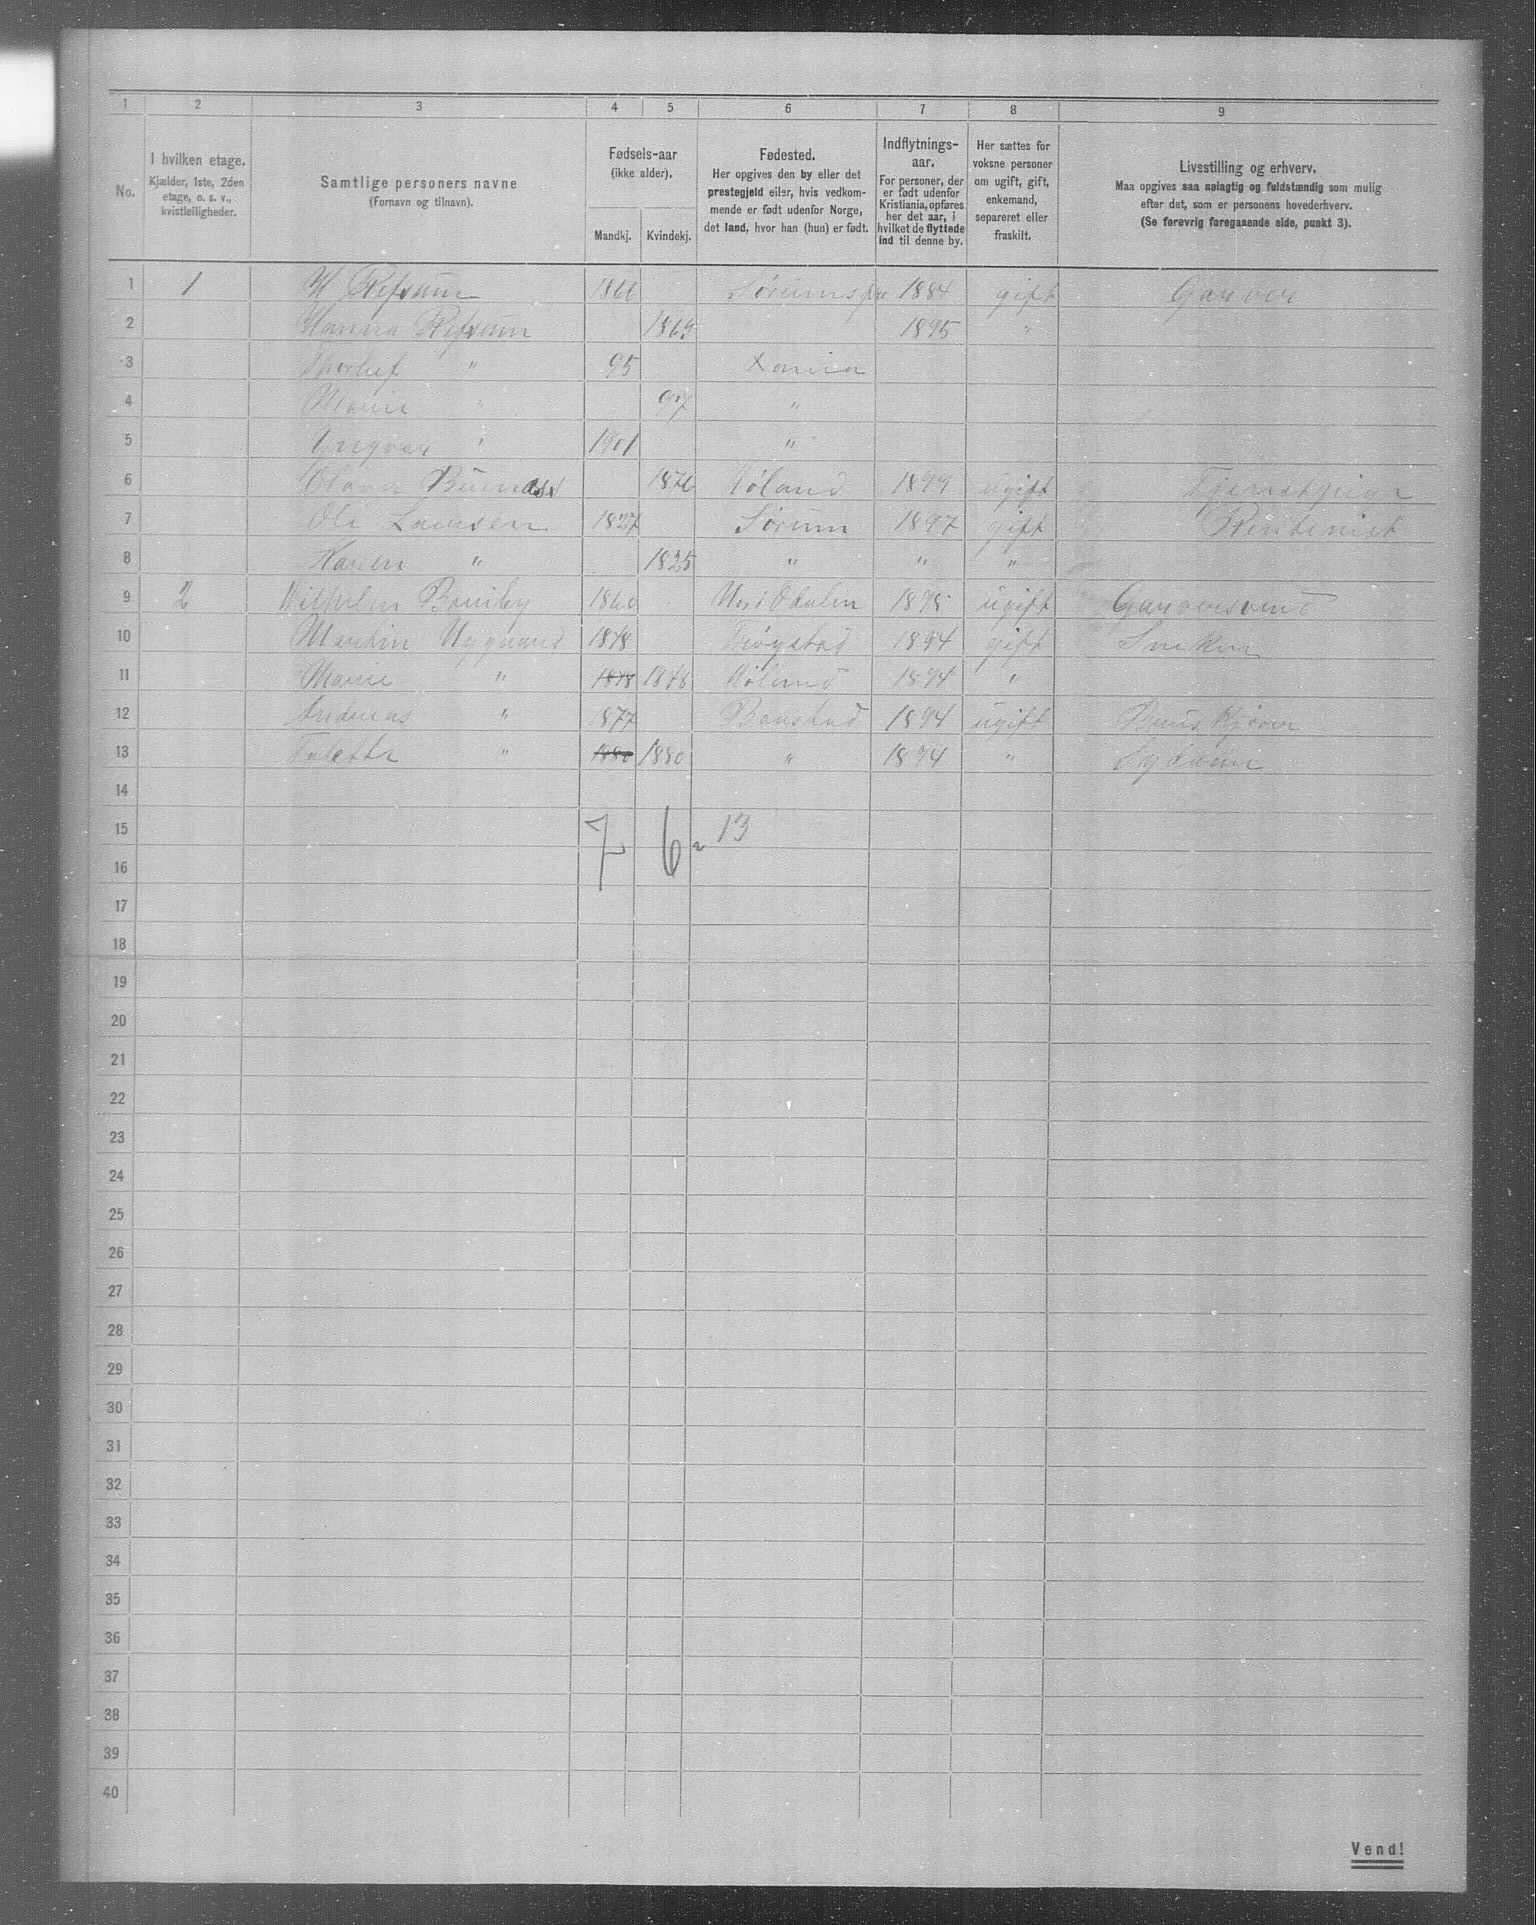 1 2 3 4 5 6 7 8 9
No.
I hvilken etage.
Kjælder, 1ste, 2den
etage, o. s. v.,
kvistleiligheder.
Samtlige personers navne
(Fornavn og tilnavn).
Fødsels-aar
(ikke alder).
Mandkj. Kvindekj.
Fødested.
Her opgives den by eller det
prestegjeld eller, hvis vedkom-
mende er født udenfor Norge,
det land, hvor han (hun) er født.
Indflytnings-
aar.
For personer, der
er født udenfor
Kristiania, opføres
her det aar, i
hvilket de flyttede
ind til denne by.
Her sættes for
voksne personer
om ugift, gift,
enkemand,
separeret eller
fraskilt.
Livsstilling og erhverv.
Maa opgives saa nøiagtig og fuldstændig som mulig
efter det, som er personens hovederhverv.
(Se forøvrig foregaaende side, punkt 3).
1 1 H Refsum 1866 1884 gift Garver
2 Hanna Refsum 1869 1895 "
3 Thorleif " 95 Xania
4 Marie " 97 "
5 Yngvar " 1901 "
6 1876 Høland 1899 ugift Tjenstpige
7 Ole Larsen 1827 Sørum 1897 gift Rentenist
8 Karen " 1825 " " "
9 2 Wilhelm 1860 Nord Odalen 1895 ugift Garversvend
10 Martin Nygaard 1878 Trøgstad 1894 gift Snekker
11 Marie " 1878 1878 Høland 1894 "
12 Andreas " 1877 Baastad 1894 ugift
13 Valette " 1880 1880 " 1894 " Sydame
14
15 7 6 = 13
16
17
18
19
20
21
22
23
24
25
26
27
28
29
30
31
32
33
34
35
36
37
38
39
40
Vend!